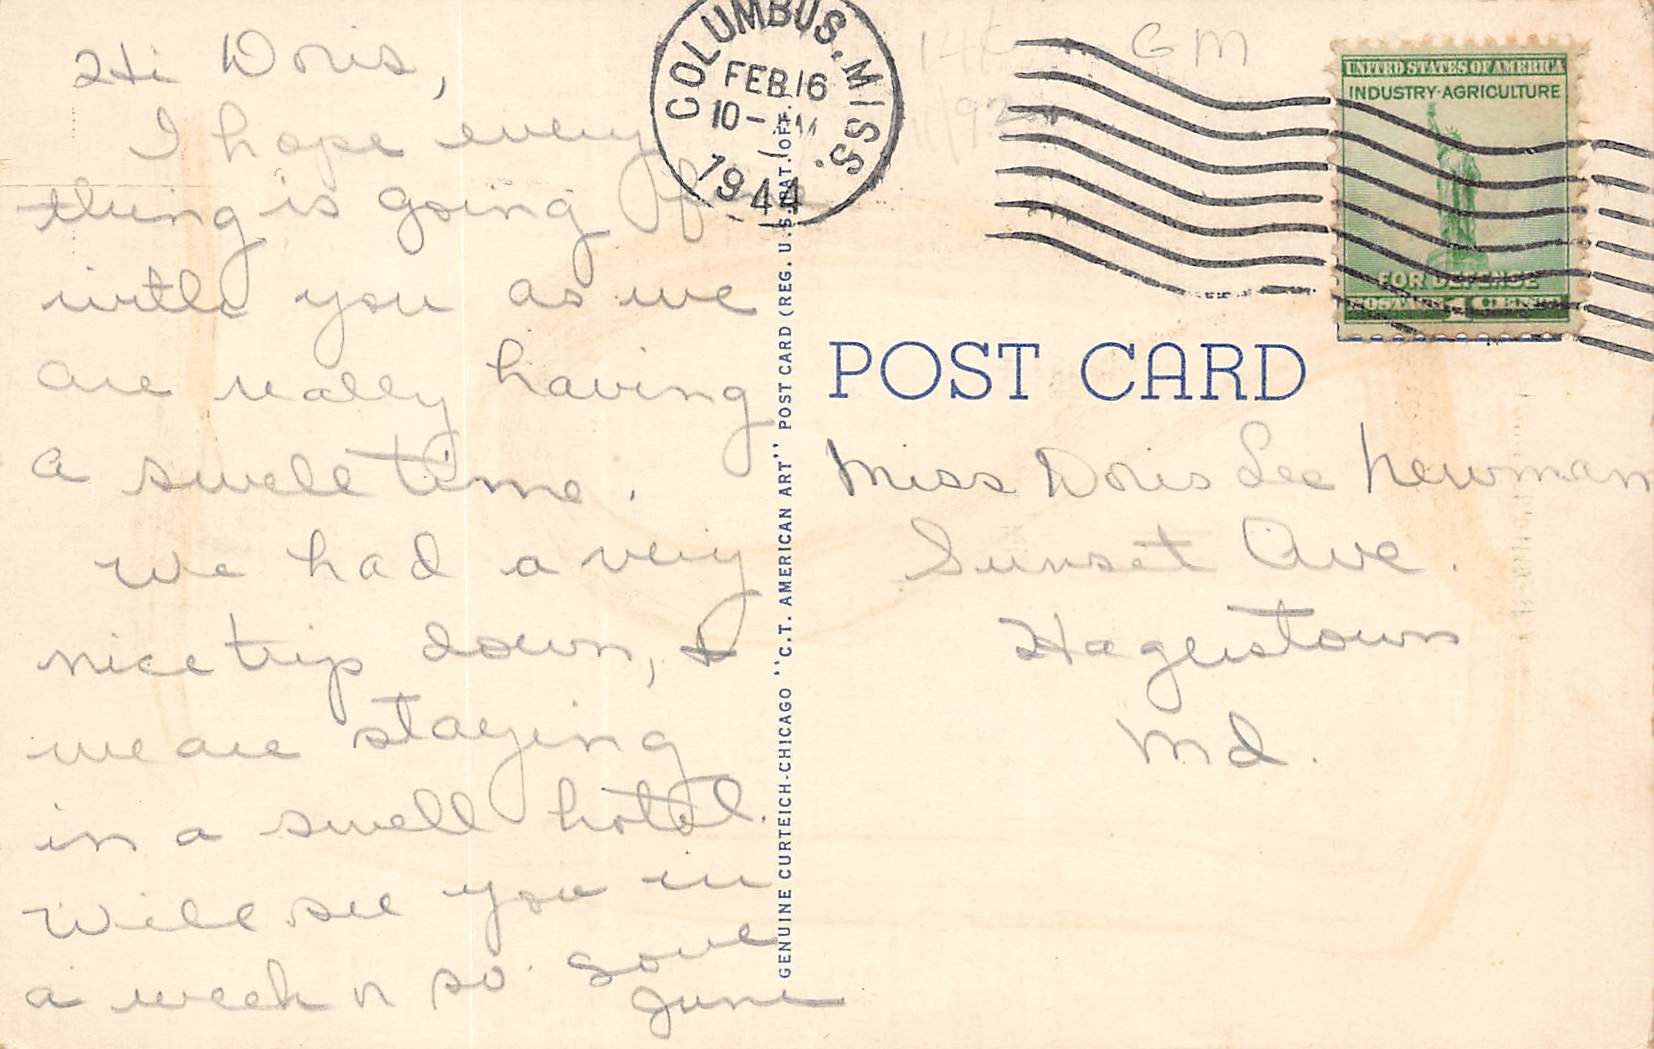 Hi Doris,
I hope every
thing is going
with you as we
are really having
a swell time.
We had a very
nice trip down, &
we are staying
in a swell hotel.
Will see you in
a week or so.
Love
June
COLUMBUS, MISS.
FEB 16
10-
1944
GM
UNITED STATES OF AMERICA
INDUSTRY·AGRICULTURE
FOR DEFENSE
POST CARD
Miss Doris Lee Newman
Sunset Ave.
Hagerstown
Md.
GENUINE CURTEICH-CHICAGO "C.T. AMERICAN ART" POST CARD (REG. U.S. PAT. OFF.)